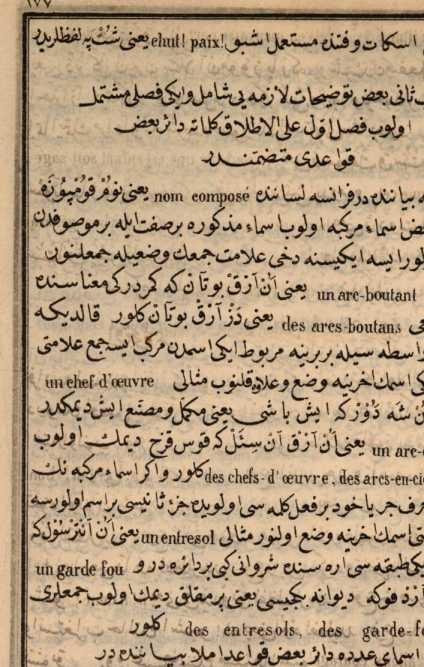 ١٧٧
اسكات وفتنده مستعمل اشبو chut! paix! يعنى شُتْ پَه لفظلريدر
ثانى بعض توضيحات لازمه يى شامل وايكى فصلى مشتمل
اولوب فصل اوّل على الاطلاق كلماته دائر بعض
قواعدى متضمندر
بياننده در فرانسه لساننده nom composé يعنى نوُمْ قوُمپوُزَه
اسماء مركبه اولوب اسماء مذكوره بر صفت ايله بر موصوفدن
ايسه ايكيسنه دخى علامت جمعك وضعيله جمعلنور
un arc-boutant يعنى اَنْ آرْقْ بوُتَانْ كه كمر دركى معناسنده
des arcs-boutans يعنى دَزْ آرْقْ بوُتَانْ كلور قالديكه
واسطه سيله بربرينه مربوط ايكى اسمدن مركب ايسه جمع علامتى
اسمك آخرينه وضع وعلاوه قلنوب مثالى un chef-d'œuvre
شَه دُوْرْ كه ايش باشى يعنى مكمل ومصنع ايش ديمكدر
un arc-e يعنى اَنْ آرْقْ آنْ سِئَلْ كه قوس قزح ديمك اولوب
des chefs-d'œuvre, des arcs-en-cie كلور واكر اسماء مركبه نك
حرف جر ياخود بر فعل كلمه سى اولوبده جزء ثانيسى بر اسم اولورسه
اسمك آخرينه وضع اولنور مثالى un entresol يعنى اَنْ آنْتْرَسُولْ كه
ايكى طبقه سى اره سنده شروانى كبى بر دائره در و un garde fou
غارْدْ فوُ كه ديوانه بكجيسى يعنى پرمقلق ديمك اولوب جمعلرى
des entresols, des garde-f كلور
اسماى عدده دائر بعض قواعد املا بياننده در